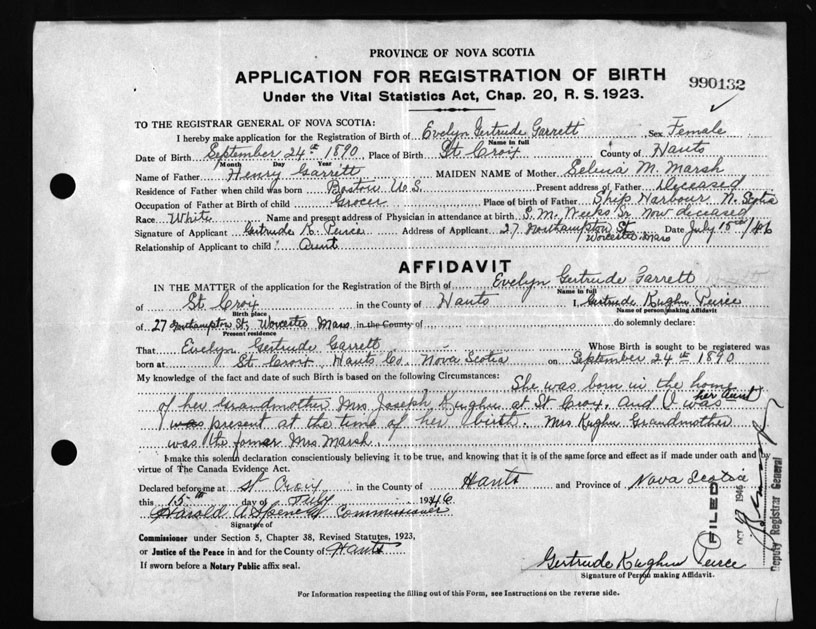 PROVINCE OF NOVA SCOTIA
APPLICATION FOR REGISTRATION OF BIRTH
990132
Under the Vital Statistics Act, Chap. 20, R. S. 1923.
TO THE REGISTRAR GENERAL OF NOVA SCOTIA:
I hereby make application for the Registration of Birth of Evelyn Gertrude Garrett Sex Female
Name in full
Date of Birth September 24th 1890 Place of Birth St Croix County of Hants
Month Day Year
Name of Father Henry Garrett MAIDEN NAME of Mother Selina M. Marsh
Residence of Father when child was born Boston U.S. Present address of Father Deceased
Occupation of Father at Birth of child Grocer Place of birth of Father Ship Harbour N. Scotia
Race White Name and present address of Physician in attendance at birth S. M. Weeks Dr Now deceased
Signature of Applicant Gertrude K. Peirce Address of Applicant 27 Northampton St Date July 15th/46
Worcester Mass
Relationship of Applicant to child Aunt
AFFIDAVIT
IN THE MATTER of the application for the Registration of the Birth of Evelyn Gertrude Garrett
Name in full
of St Croix in the County of Hants I, Gertrude Kughn Peirce
Birth place Name of person making Affidavit
of 27 Northampton St, Worcester Mass in the County of do solemnly declare:
Present residence
That Evelyn Gertrude Garrett Whose Birth is sought to be registered was
born at St Croix, Hants Co. Nova Scotia on September 24th 1890
My knowledge of the fact and date of such Birth is based on the following Circumstances: She was born in the home
of her Grandmother Mrs Joseph Kughn at St Croix. and I was her aunt
was present at the time of her birth. Mrs Kughn Grandmother
was the former Mrs Marsh.
I make this solemn declaration conscientiously believing it to be true, and knowing that it is of the same force and effect as if made under oath and by
virtue of The Canada Evidence Act.
Declared before me at St Croix in the County of Hants and Province of Nova Scotia
this 15th day of July 1946
Harold A Spence Commissioner
Signature of
Commissioner under Section 5, Chapter 38, Revised Statutes, 1923,
or Justice of the Peace in and for the County of Hants
If sworn before a Notary Public affix seal.
Gertrude Kughn Peirce
Signature of Person making Affidavit.
For Information respecting the filling out of this Form, see Instructions on the reverse side.
FILED
OCT 1946
Deputy Registrar General